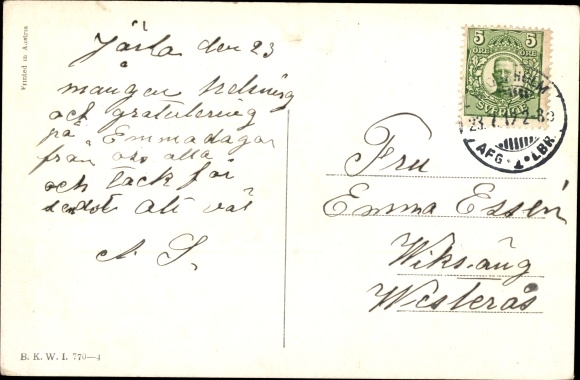 Printed in Austria
Järla den 23
mången helsning
och gratulering
på "Emmadagen"
från oss alla
och tack för
sedst alt väl
A. S.
B. K. W. I. 770-4
5 5
ÖRE ÖRE
SVERIGE
HOLM
23.7.19 2-
AFG. 1. LBR.
Fru
Emma Essén
Wiksäng
Westerås